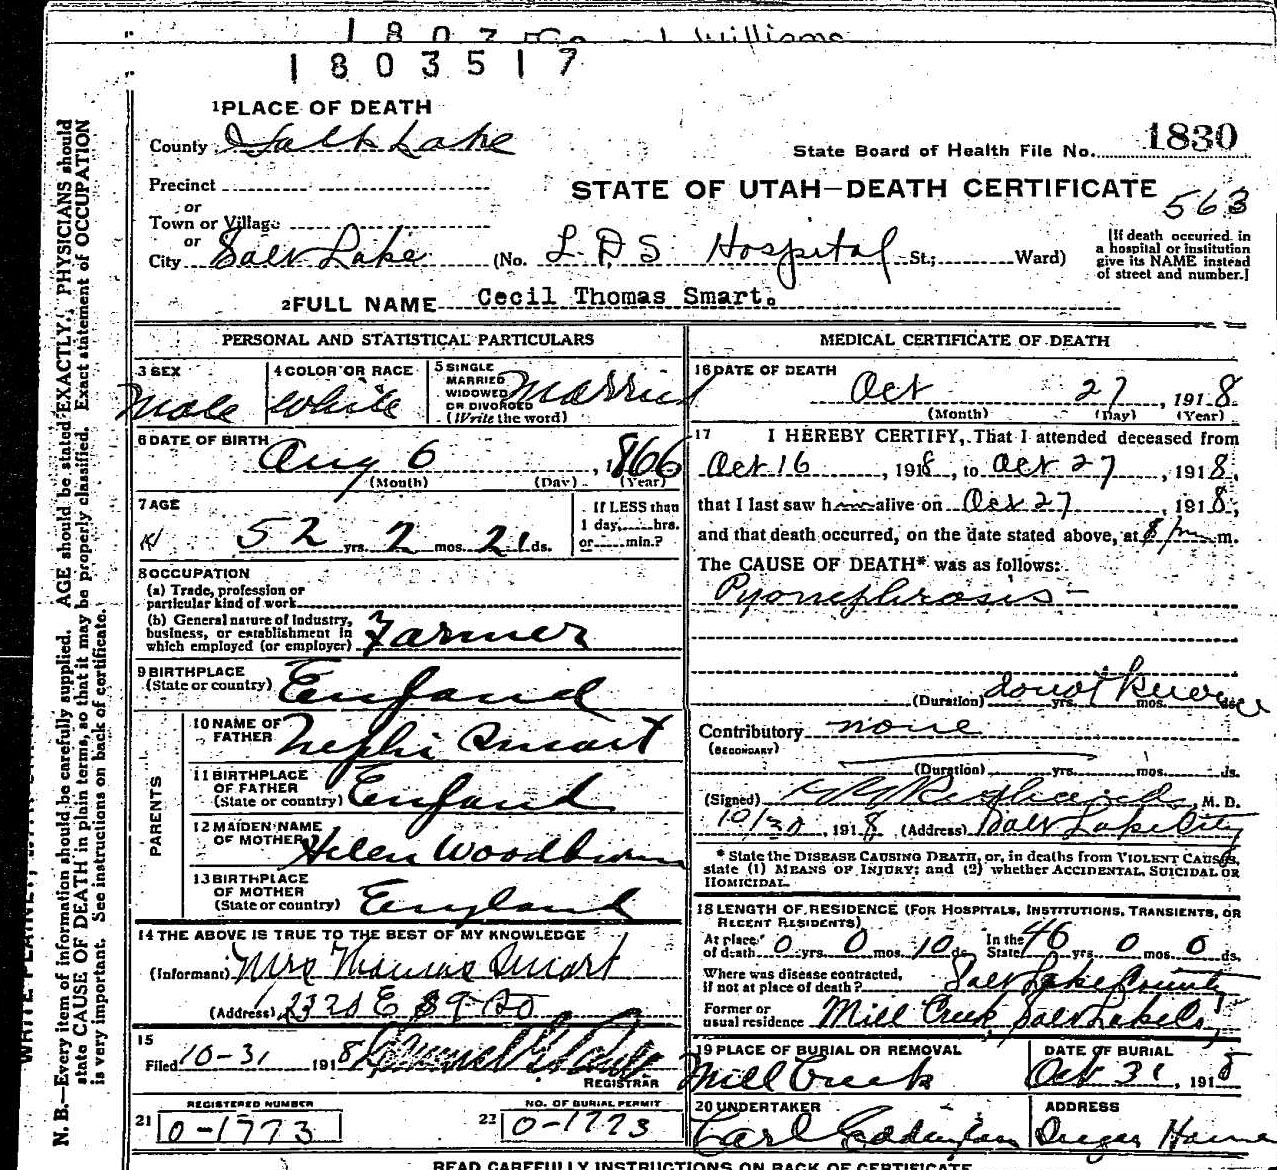 1803519
1 PLACE OF DEATH
County Salt Lake
State Board of Health File No. 1830
Precinct
STATE OF UTAH—DEATH CERTIFICATE
563
or
Town or Village
or
City Salt Lake (No. L.D.S Hospital St; Ward)
[If death occurred in
a hospital or institution
give its NAME instead
of street and number.]
2 FULL NAME Cecil Thomas Smart.
PERSONAL AND STATISTICAL PARTICULARS
3 SEX
Male
4 COLOR OR RACE
White
5 SINGLE
MARRIED
WIDOWED
OR DIVORCED
(Write the word)
Married
6 DATE OF BIRTH
Aug 6, 1866
(Month) (Day) (Year)
7 AGE
52 yrs. 2 mos. 21 ds.
If LESS than
1 day, hrs.
or min.?
8 OCCUPATION
(a) Trade, profession or
particular kind of work
(b) General nature of Industry,
business, or establishment in
which employed (or employer) Farmer
9 BIRTHPLACE
(State or country) England
PARENTS
10 NAME OF
FATHER Nephi Smart
11 BIRTHPLACE
OF FATHER
(State or country) England
12 MAIDEN NAME
OF MOTHER Helen Woodburn
13 BIRTHPLACE
OF MOTHER
(State or country) England
14 THE ABOVE IS TRUE TO THE BEST OF MY KNOWLEDGE
(Informant) Mrs Thomas Smart
(Address)
15
Filed 10-31 1918
REGISTRAR
REGISTERED NUMBER
21 0-1773
NO. OF BURIAL PERMIT
22 0-1773
MEDICAL CERTIFICATE OF DEATH
16 DATE OF DEATH
Oct 27, 1918
(Month) (Day) (Year)
17 I HEREBY CERTIFY, That I attended deceased from
Oct 16, 1918, to Oct 27, 1918,
that I last saw h alive on Oct 27, 1918,
and that death occurred, on the date stated above, at 8 m.
The CAUSE OF DEATH* was as follows:
Pyonephrosis
(Duration) yrs. mos. ds.
Contributory none
(SECONDARY)
(Duration) yrs. mos. ds.
(Signed) M. D.
10/30, 1918 (Address) Salt Lake City
* State the DISEASE CAUSING DEATH, or, in deaths from VIOLENT CAUSES,
state (1) MEANS OF INJURY; and (2) whether ACCIDENTAL, SUICIDAL OR
HOMICIDAL.
18 LENGTH OF RESIDENCE (FOR HOSPITALS, INSTITUTIONS, TRANSIENTS, OR
RECENT RESIDENTS)
At place of death 0 yrs. 0 mos. 10 ds. In the State 46 yrs. 0 mos. 0 ds.
Where was disease contracted,
if not at place of death? Salt Lake County
Former or
usual residence Mill Creek Salt Lake Co,
19 PLACE OF BURIAL OR REMOVAL
Mill Creek
DATE OF BURIAL
Oct 31, 1918
20 UNDERTAKER
Carl
ADDRESS
Sugar House
READ CAREFULLY INSTRUCTIONS ON BACK OF CERTIFICATE
N. B.—Every item of information should be carefully supplied. AGE should be stated EXACTLY. PHYSICIANS should
state CAUSE OF DEATH in plain terms, so that it may be properly classified. Exact statement of OCCUPATION
is very important. See instructions on back of certificate.